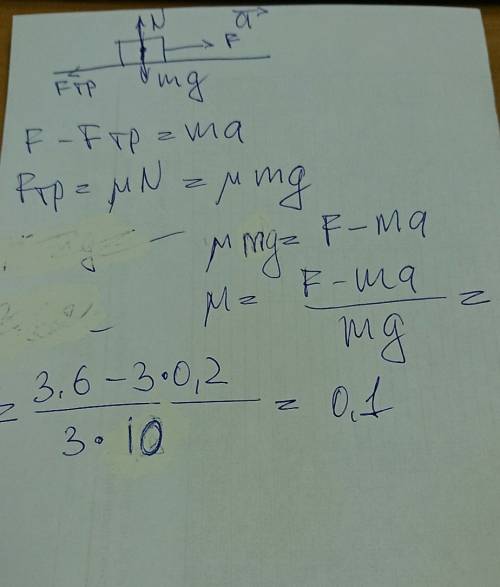 N a
F
Fтр mg
F - Fтр = ma
Fтр = μN = μmg
μmg = F - ma
μ = F - ma / mg =
= 3,6 - 3·0,2 / 3·10 = 0,1